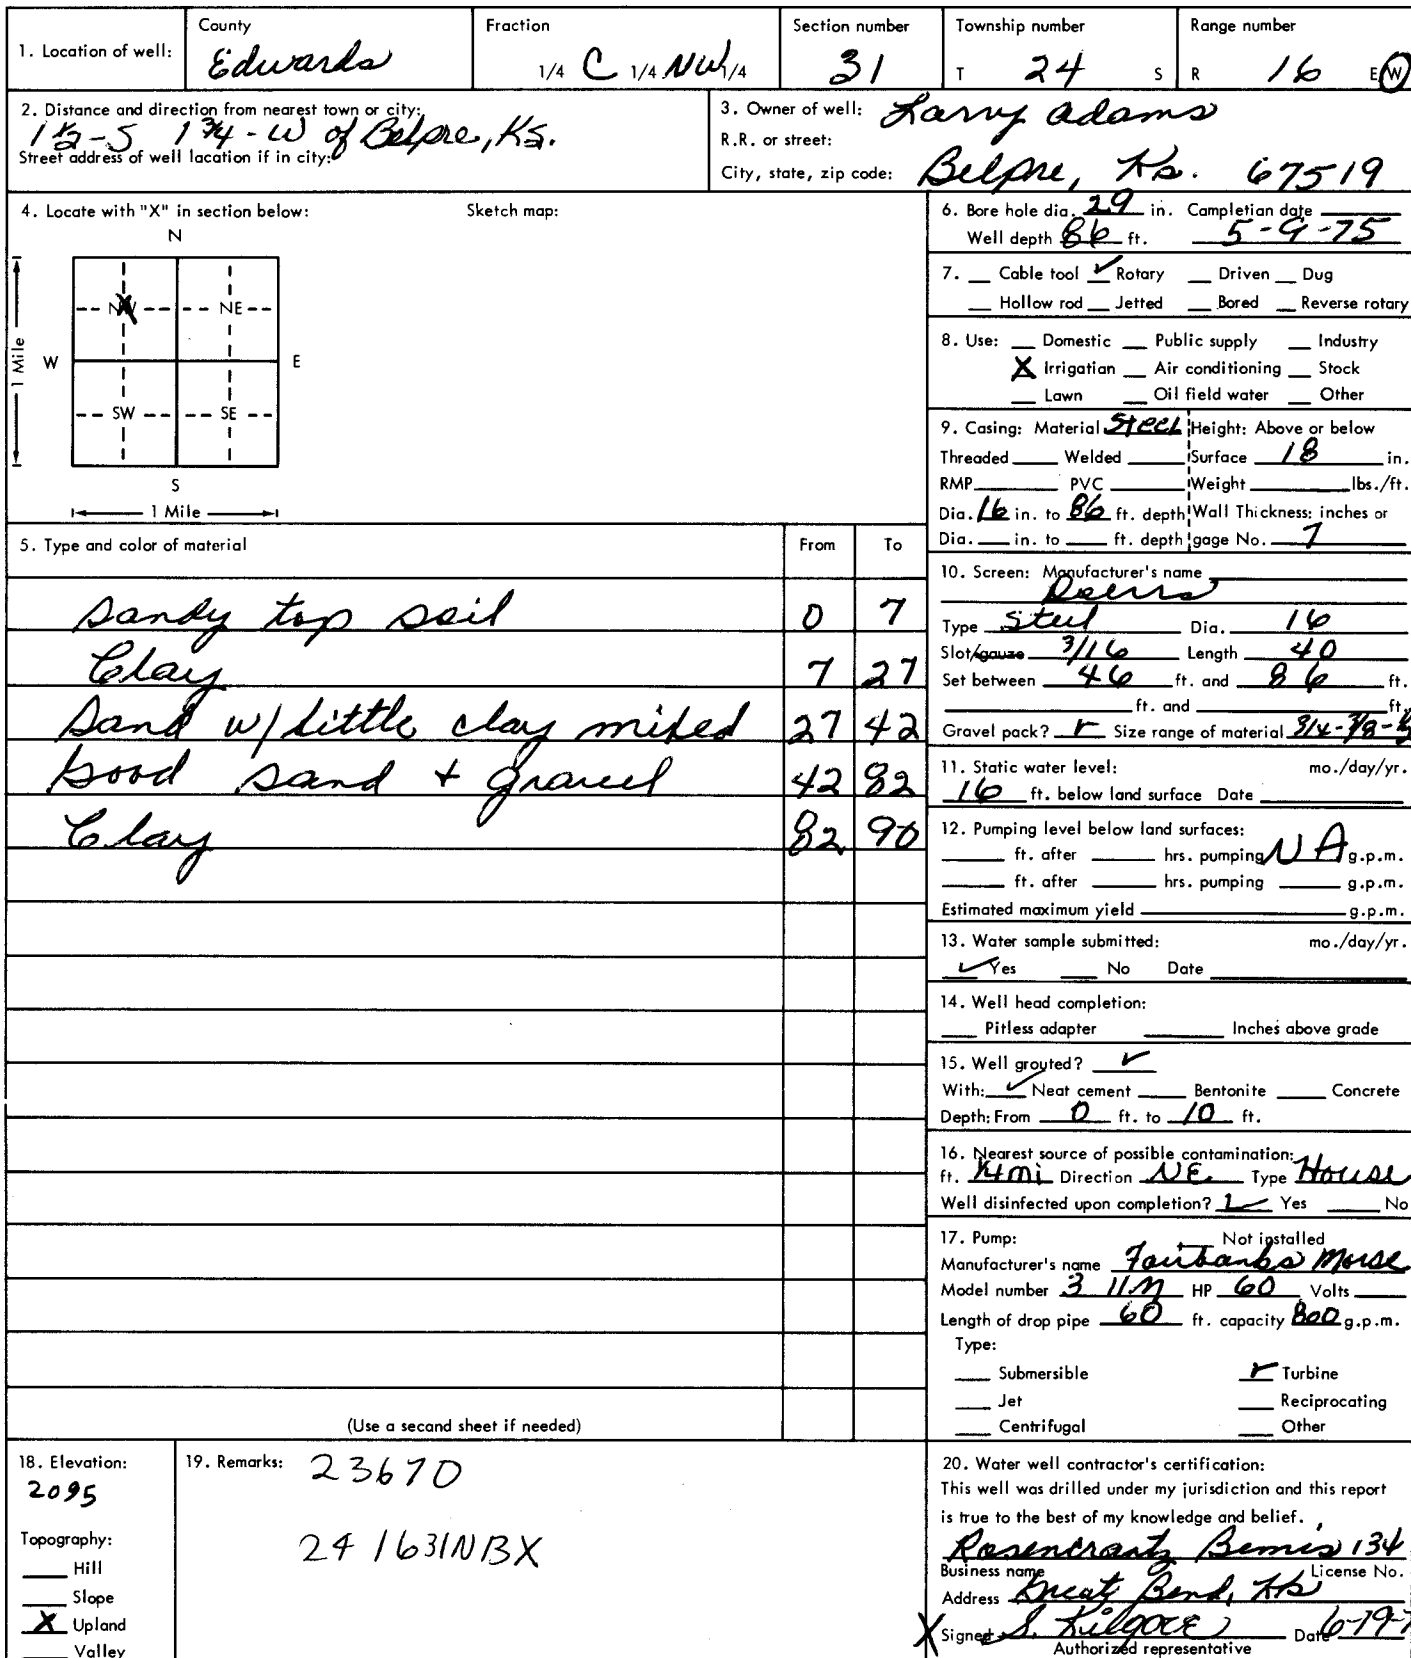 1. Location of well:
County
Edwards
Fraction
1/4 C 1/4 NW 1/4
Section number
31
Township number
T 24 S
Range number
R 16 E W
2. Distance and direction from nearest town or city:
1 1/2 - S 1 3/4 - W of Belpre, Ks.
Street address of well location if in city:
3. Owner of well: Larry Adams
R.R. or street:
City, state, zip code: Belpre, Ks. 67519
4. Locate with "X" in section below:
Sketch map:
N
NW NE
W E
SW SE
S
1 Mile
1 Mile
5. Type and color of material From To
Sandy top soil 0 7
Clay 7 27
Sand w/little clay mixed 27 42
Good sand + gravel 42 82
Clay 82 90
(Use a second sheet if needed)
6. Bore hole dia. 29 in. Completion date
Well depth 86 ft. 5-9-75
7. Cable tool ✓ Rotary Driven Dug
Hollow rod Jetted Bored Reverse rotary
8. Use: Domestic Public supply Industry
X Irrigation Air conditioning Stock
Lawn Oil field water Other
9. Casing: Material Steel Height: Above or below
Threaded Welded Surface 18 in.
RMP PVC Weight lbs./ft.
Dia. 16 in. to 86 ft. depth Wall Thickness: inches or
Dia. in. to ft. depth gage No. 7
10. Screen: Manufacturer's name
Doerrs
Type Steel Dia. 16
Slot/gauze 3/16 Length 40
Set between 46 ft. and 86 ft.
ft. and ft.
Gravel pack? ✓ Size range of material 3/4-3/8-
11. Static water level: mo./day/yr.
16 ft. below land surface Date
12. Pumping level below land surfaces:
ft. after hrs. pumping NA g.p.m.
ft. after hrs. pumping g.p.m.
Estimated maximum yield g.p.m.
13. Water sample submitted: mo./day/yr.
✓ Yes No Date
14. Well head completion:
Pitless adapter Inches above grade
15. Well grouted? ✓
With: ✓ Neat cement Bentonite Concrete
Depth: From 0 ft. to 10 ft.
16. Nearest source of possible contamination:
ft. 1/4 mi Direction NE Type House
Well disinfected upon completion? ✓ Yes No
17. Pump: Not installed
Manufacturer's name Fairbanks Morse
Model number 3 11M HP 60 Volts
Length of drop pipe 60 ft. capacity 800 g.p.m.
Type:
Submersible ✓ Turbine
Jet Reciprocating
Centrifugal Other
18. Elevation:
2095
Topography:
Hill
Slope
X Upland
Valley
19. Remarks: 23670
24 1631NBX
20. Water well contractor's certification:
This well was drilled under my jurisdiction and this report
is true to the best of my knowledge and belief.
Rosencrantz Bemis 134
Business name License No.
Address Great Bend, Ks
X Signed S. Kilgore Date 6-19-7
Authorized representative